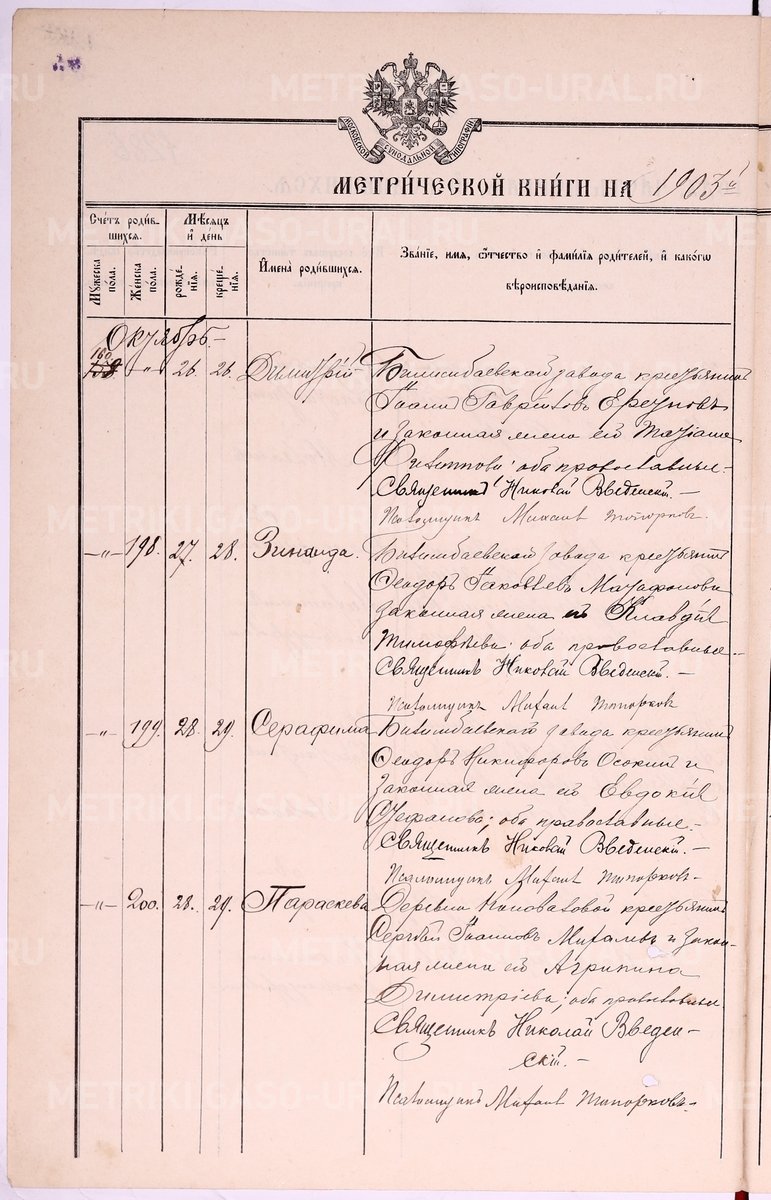 МОСКОВСКОЙ СѴНОДАЛЬНОЙ ТИПОГРАФІИ
МЕТРИ́ЧЕСКОЙ КНИ́ГИ НА 1903й
Сче́тъ роди́в-
шихся.
Мѣ́сяцъ
и҆ де́нь
Мꙋ́жеска по́ла.
Же́нска по́ла.
рожде́-
нїѧ.
креще́-
нїѧ.
И҆мена̀ роди́вшихся.
Зва́нїе, и҆́мѧ, ѻ҆́тчество и҆ фами́лїѧ роди́телей, и҆ како́гѡ
вѣроисповѣ́данїѧ.
Октябрь-
160.
158. -"- 26 26. Димитрій Билимбаевскаго завода крестьянинъ
Іоаннъ Гавріиловъ Ергуновъ
и законная жена его Татіана
Филиппова: оба православные.-
Священникъ Николай Введенскій.-
Псаломщикъ Михаилъ Топорковъ.
-"- 198. 27. 28. Зинаида. Билимбаевскаго завода крестьянинъ
Ѳеодоръ Іаковлевъ и
законная жена его Клавдія
Тимофѣева: оба православные.-
Священникъ Николай Введенскій.-
Псаломщикъ Михаилъ Топорковъ
-"- 199. 28. 29. Серафима Билимбаевскаго завода крестьянинъ
Ѳеодоръ Никифоровъ Осокинъ и
законная жена его Евдокія
Стефанова; оба православные.-
Священникъ Николай Введенскій.-
Псаломщикъ Михаилъ Топорковъ-
-"- 200. 28. 29. Параскева Деревни Коноваловой крестьянинъ
Сергѣй Іоанновъ Михалевъ и закон-
ная жена его Агрипина
Димитріева; оба православные
Священникъ Николай Введен-
скій.-
Псаломщикъ Михаилъ Топорковъ.-
METRIKI.GASO-URAL.RU